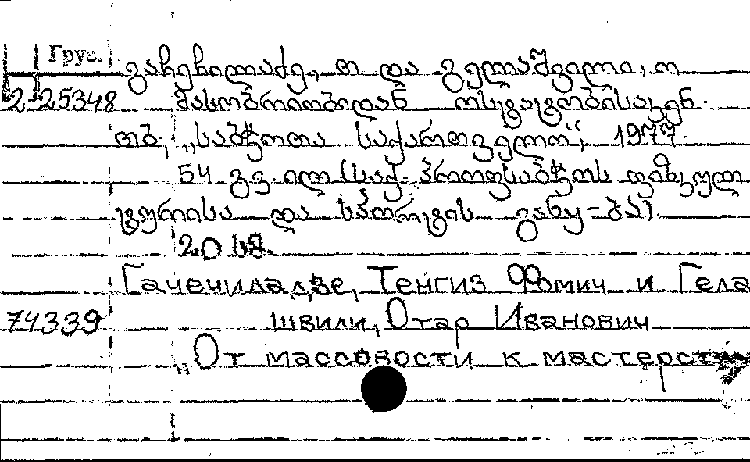 Груз.
გაჩეჩილაძე, თ და გელაშვილი, ო
2-25348 მასობრიობიდან ოსტატობისაკენ.
თბ., „საბჭოთა საქართველო“, 1977
54 გვ. ილ (საქ. პროფსაბჭოს ფიზკულ
ტურისა და სპორტის განყ-ბა).
Гачечиладзе, Тенгиз Фомич и Гела
74339 швили, Отар Иванович
„От массовости к мастерст